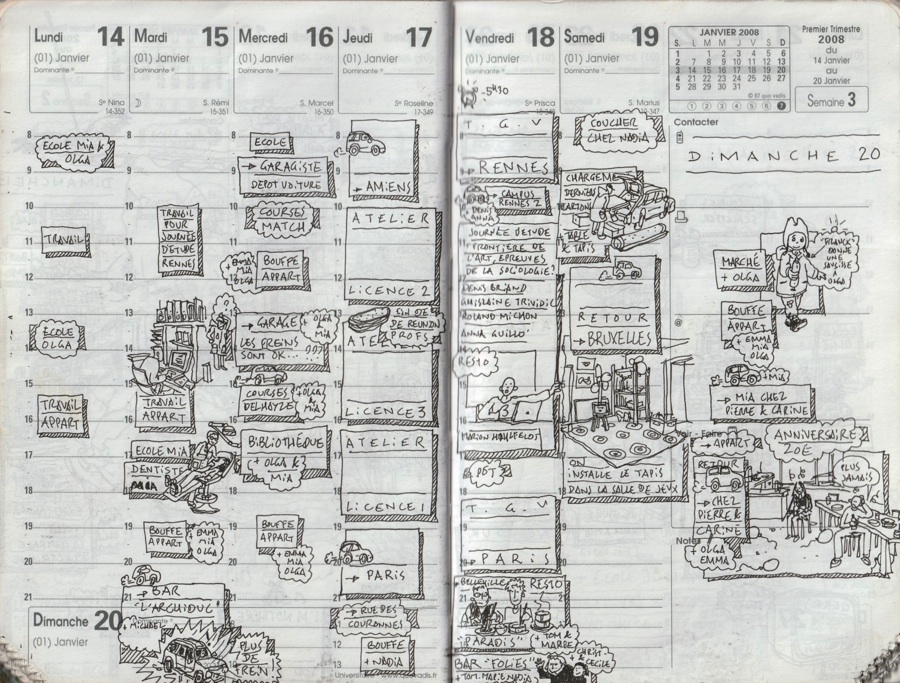 Lundi 14
(01) Janvier
Dominante
Ste Nina
14-352
8
ECOLE MIA &
OLGA
9
10
TRAVAIL
11
12
13
ECOLE
OLGA
14
15
TRAVAIL
APPART
16
17
18
19
20
21
Mardi 15
(01) Janvier
Dominante
S. Rémi
15-351
TRAVAIL
POUR
JOURNÉE
D'ETUDE
RENNES
TRAVAIL
APPART
ECOLE MIA
DENTISTE
BOUFFE
APPART
+ EMMA
MIA
OLGA
→ BAR
"L'ARCHIDUC"
+ MICHAEL
PLUS
DE
FREIN
Mercredi 16
(01) Janvier
Dominante
S. Marcel
16-350
ECOLE
→ GARAGISTE
DEPOT VOITURE
COURSES
MATCH
BOUFFE
APPART
+ EMMA
MIA
OLGA
→ GARAGE
+ OLGA
& MIA
LES FREINS
SONT OK... ???
COURSES
DELHAYZE
+ OLGA
& MIA
BIBLIOTHÈQUE
+ OLGA &
MIA
BOUFFE
APPART
+ EMMA
MIA
OLGA
Jeudi 17
(01) Janvier
Dominante
Ste Roseline
17-349
→ AMIENS
ATELIER
LICENCE 2
LICENCE 3
ATELIER
LICENCE 1
→ PARIS
→ RUE DES
COURONNES
BOUFFE
+ NADIA
Dimanche 20
(01) Janvier
12
13
Vendredi 18
(01) Janvier
Dominante
5H30
Ste Prisca
T. G. V
→ RENNES
→ CAMPUS
RENNES 2
+ DENIS
ANNA
JOURNÉE D'ETUDE
"FRONTIÈRE DE
L'ART, EPREUVES
DE LA SOCIOLOGIE?"
DENIS BRIAND
GHISLAINE TRIVIDIC
ROLAND MICHON
ANNA GUILLO
RESTO
POT
T. G. V
→ PARIS
BELLEVILLE RESTO
"PARADIS"
+ TOM &
MARBE
BAR "FOLIES"
+ CHRIST
& CECILE
+ TOM. MARIE. NADIA
Samedi 19
(01) Janvier
Dominante
S. Marius
COUCHER
CHEZ NADIA
DERNIERS
CARTONS
+ TABLE
& TAPIS
RETOUR
→ BRUXELLES
ON
INSTALLE LE TAPIS
DANS LA SALLE DE JEUX
JANVIER 2008
S. L M M J V S D
1 1 2 3 4 5 6
2 7 8 9 10 11 12 13
3 14 15 16 17 18 19 20
4 21 22 23 24 25 26 27
5 28 29 30 31
1 2 3 4 5 6 7
Premier Trimestre
2008
du
14 Janvier
au
20 Janvier
Semaine 3
Contacter
DIMANCHE 20
MARCHÉ
+ OLGA
BOUFFE
APPART
+ EMMA
MIA
OLGA
@
+ MIA
→ MIA CHEZ
PIERRE & CARINE
→ APPART
ANNIVERSAIRE
ZOE
PLUS
JAMAIS
RETOUR
→ CHEZ
PIERRE &
CARINE
Notes
+ OLGA
EMMA